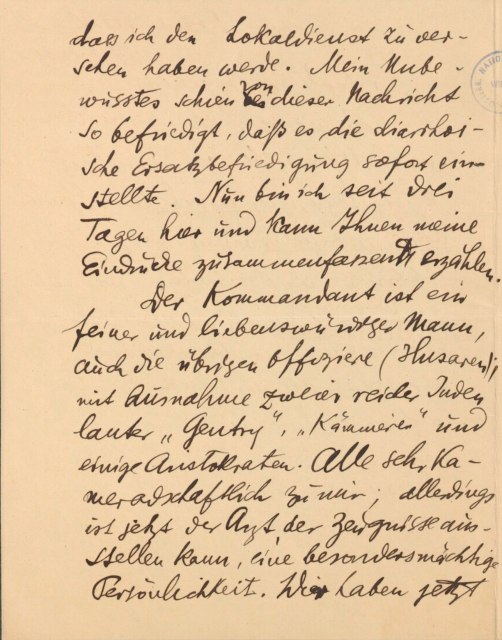 dass ich den Lokaldienst zu ver-
sehen haben werde. Mein Unbe-
wusstes schien bei dieser Nachricht
so befriedigt, daß es die diarrhoi-
sche Ersatzbefriedigung sofort ein-
stellte. Nun bin ich seit drei
Tagen hier und kann Ihnen meine
Eindrücke zusammenfassend erzählen.
Der Kommandant ist ein
feiner und liebenswürdiger Mann,
auch die übrigen Offiziere (Husaren),
mit Ausnahme zweier reicher Juden
lauter „Gentry", „Kämmerer" und
einige Aristokraten. Alle sehr ka-
meradschaftlich zu mir; allerdings
ist jetzt der Arzt der Zeugnisse aus-
stellen kann, eine besonders mächtige
Persönlichkeit. Wir haben jetzt